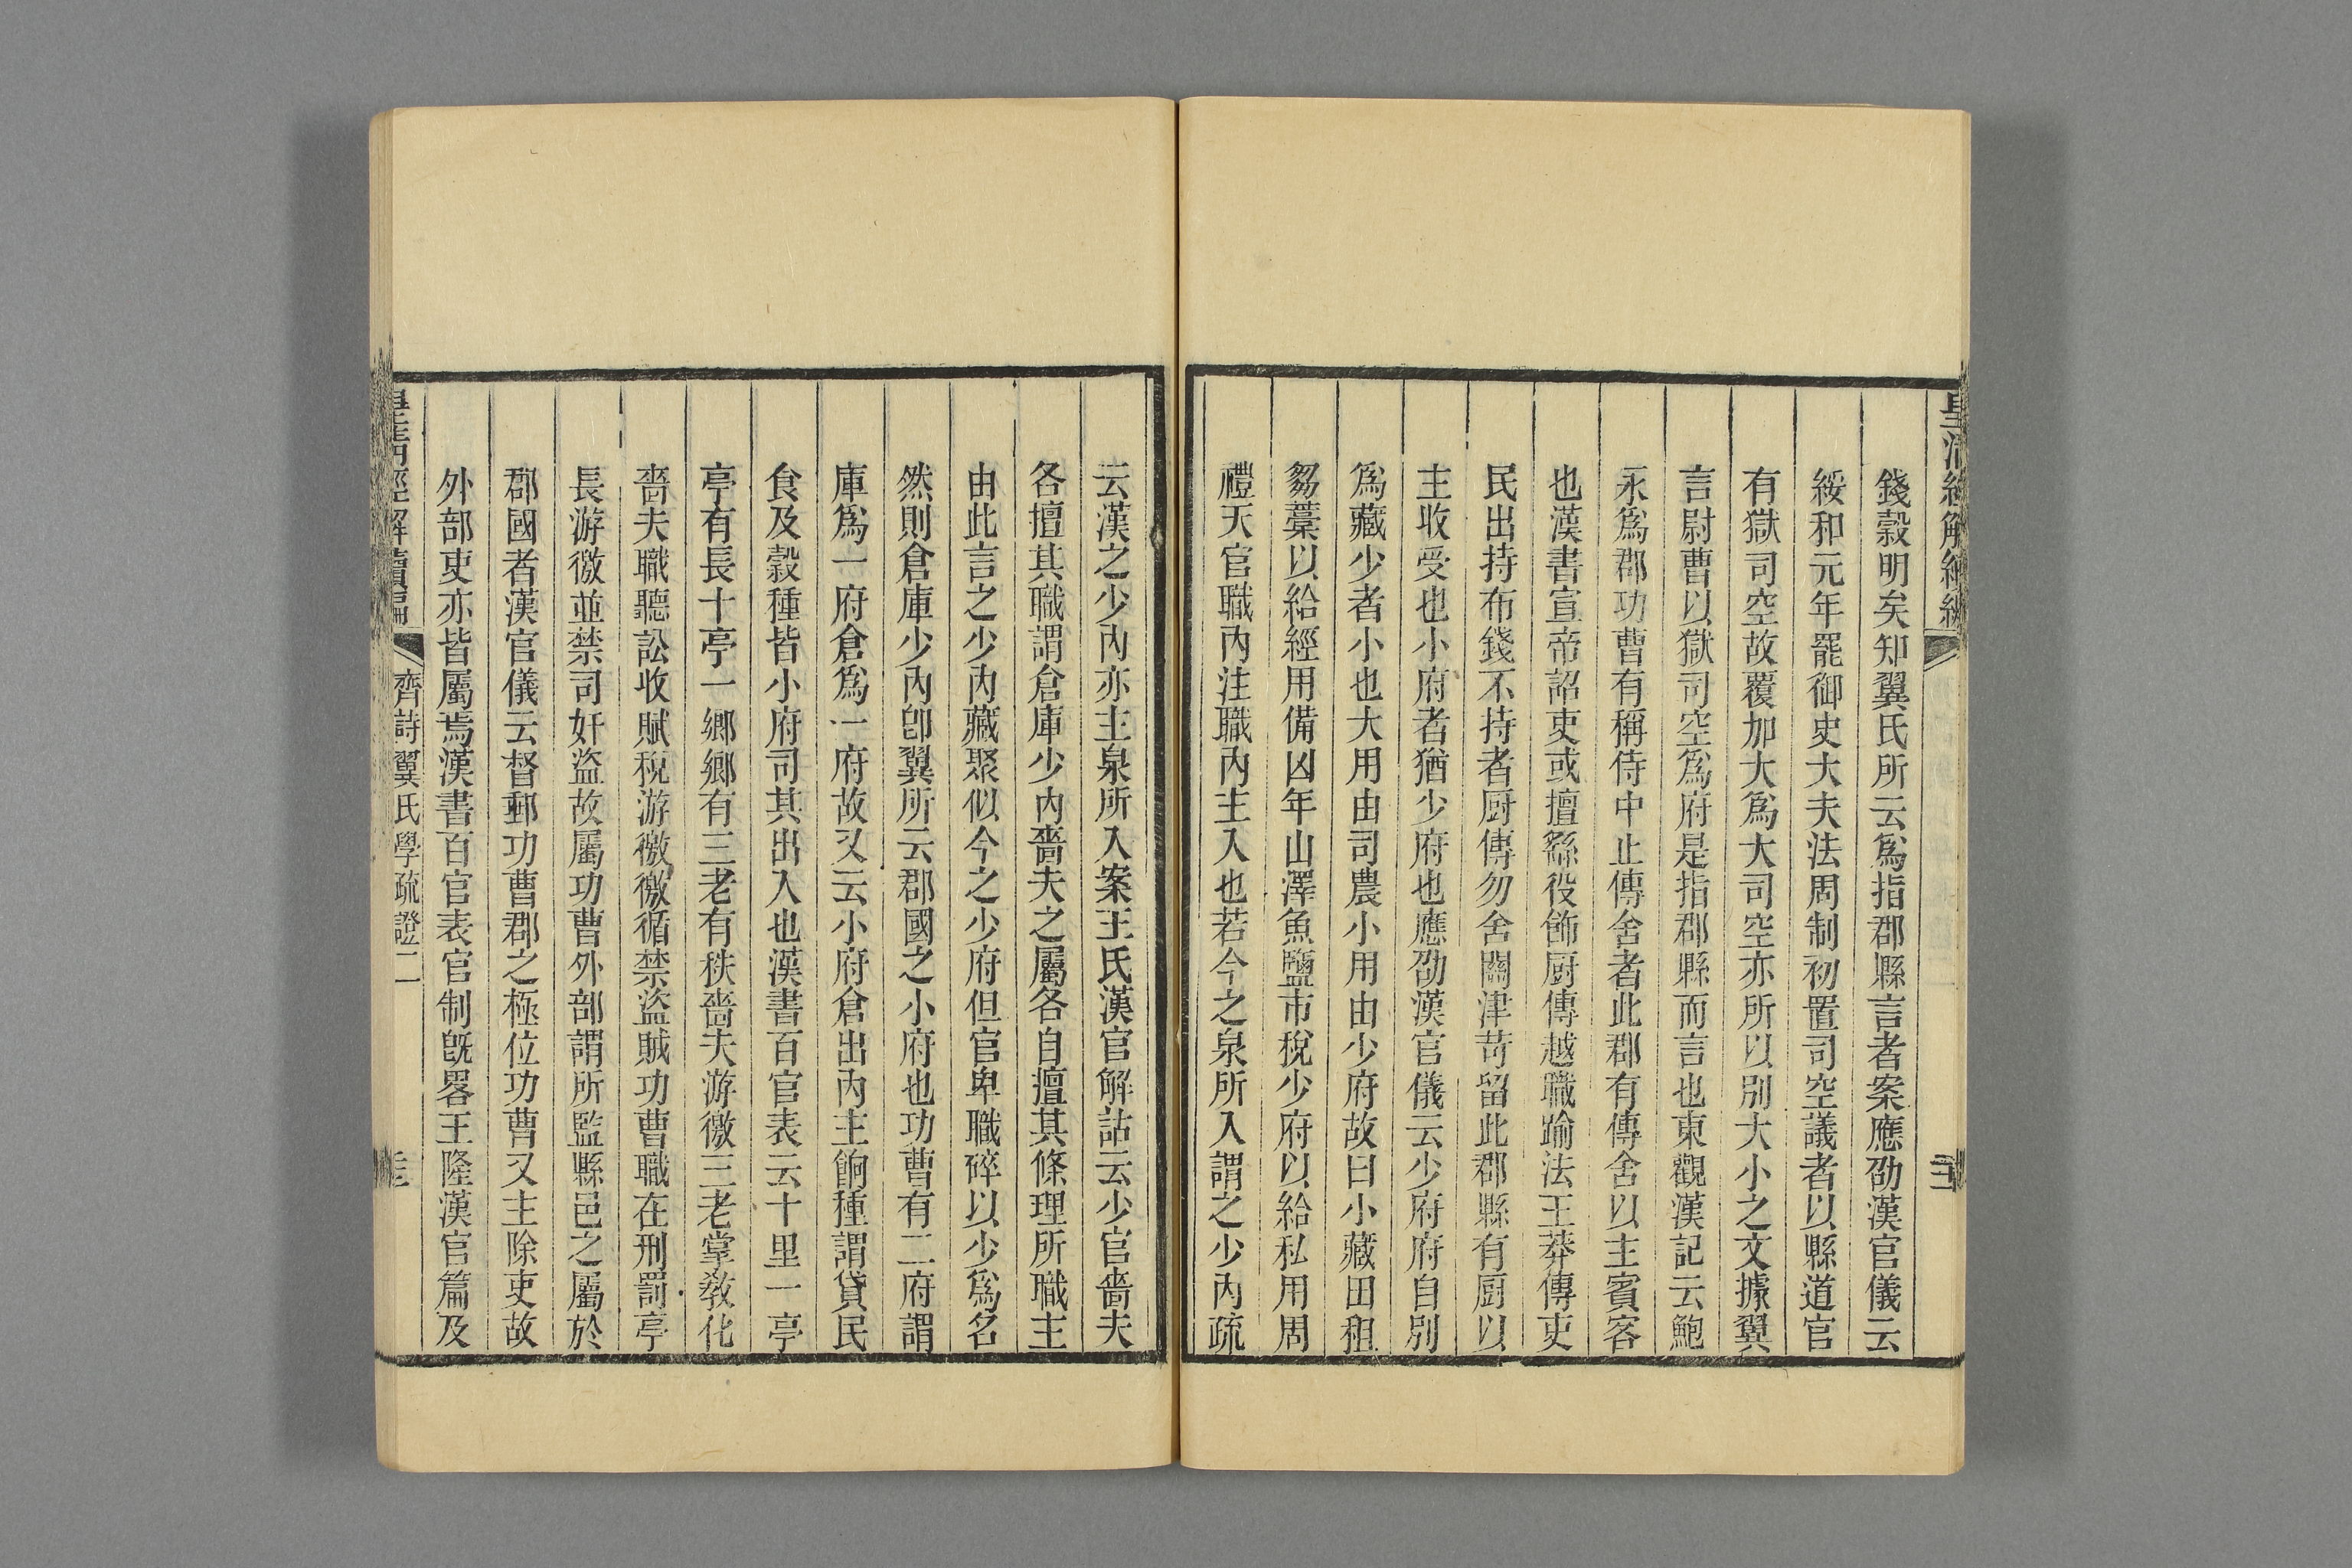 錢穀明矣知翼氏所云爲指郡縣言者案應劭漢官儀云
綏和元年罷御史大夫法周制初置司空議者以縣道官
有獄司空故覆加大爲大司空亦所以別大小之文據翼
言尉曹以獄司空爲府是指郡縣而言也東觀漢記云鮑
永爲郡功曹有稱侍中止傳舍者此郡有傳舍以主賓客
也漢書宣帝詔吏或擅繇役飾厨傳越職踰法王莽傳吏
民出持布錢不持者厨傳勿舍關津苛留此郡縣有厨以
主收受也小府者猶少府也應劭漢官儀云少府府自別
爲藏少者小也大用由司農小用由少府故曰小藏田租
芻藁以給經用備凶年山澤魚鹽市稅少府以給私用周
禮天官職內注職內主入也若今之泉所入謂之少內疏
云漢之少內亦主泉所入案王氏漢官解詁云少官嗇夫
各擅其職謂倉庫少內嗇夫之屬各自擅其條理所職主
由此言之少內藏聚似今之少府但官卑職碎以少爲名
然則倉庫少內卽翼所云郡國之小府也功曹有二府謂
庫爲一府倉爲一府故又云小府倉出內主餉種謂貸民
食及穀種皆小府司其出入也漢書百官表云十里一亭
亭有長十亭一鄉鄉有三老有秩嗇夫游徼三老掌敎化
嗇夫職聽訟收賦稅游徼徼循禁盜賊功曹職在刑罰亭
長游徼並禁司奸盜故屬功曹外部謂所監縣邑之屬於
郡國者漢官儀云督郵功曹郡之極位功曹又主除吏故
外部吏亦皆屬焉漢書百官表官制旣畧王隆漢官篇及
皇淸經解續編
齊詩翼氏學疏證二